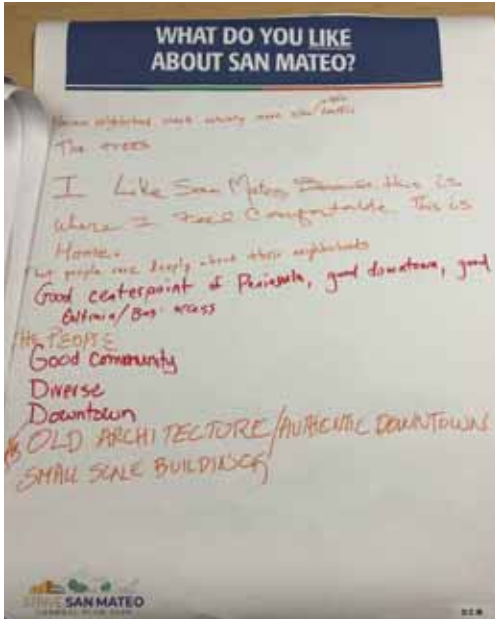 WHAT DO YOU LIKE
ABOUT SAN MATEO?
The trees
I Like San Mateo Because this is
where I Feel Comfortable This is
Home.
That people care deeply about their neighborhoods
Good centerpoint of Peninsula, good downtown, good
Caltrain/Bay access
THE PEOPLE
Good Community
Diverse
Downtown
OLD ARCHITECTURE/AUTHENTIC DOWNTOWN
SMALL SCALE BUILDINGS
STRIVE SAN MATEO
GENERAL PLAN 2040